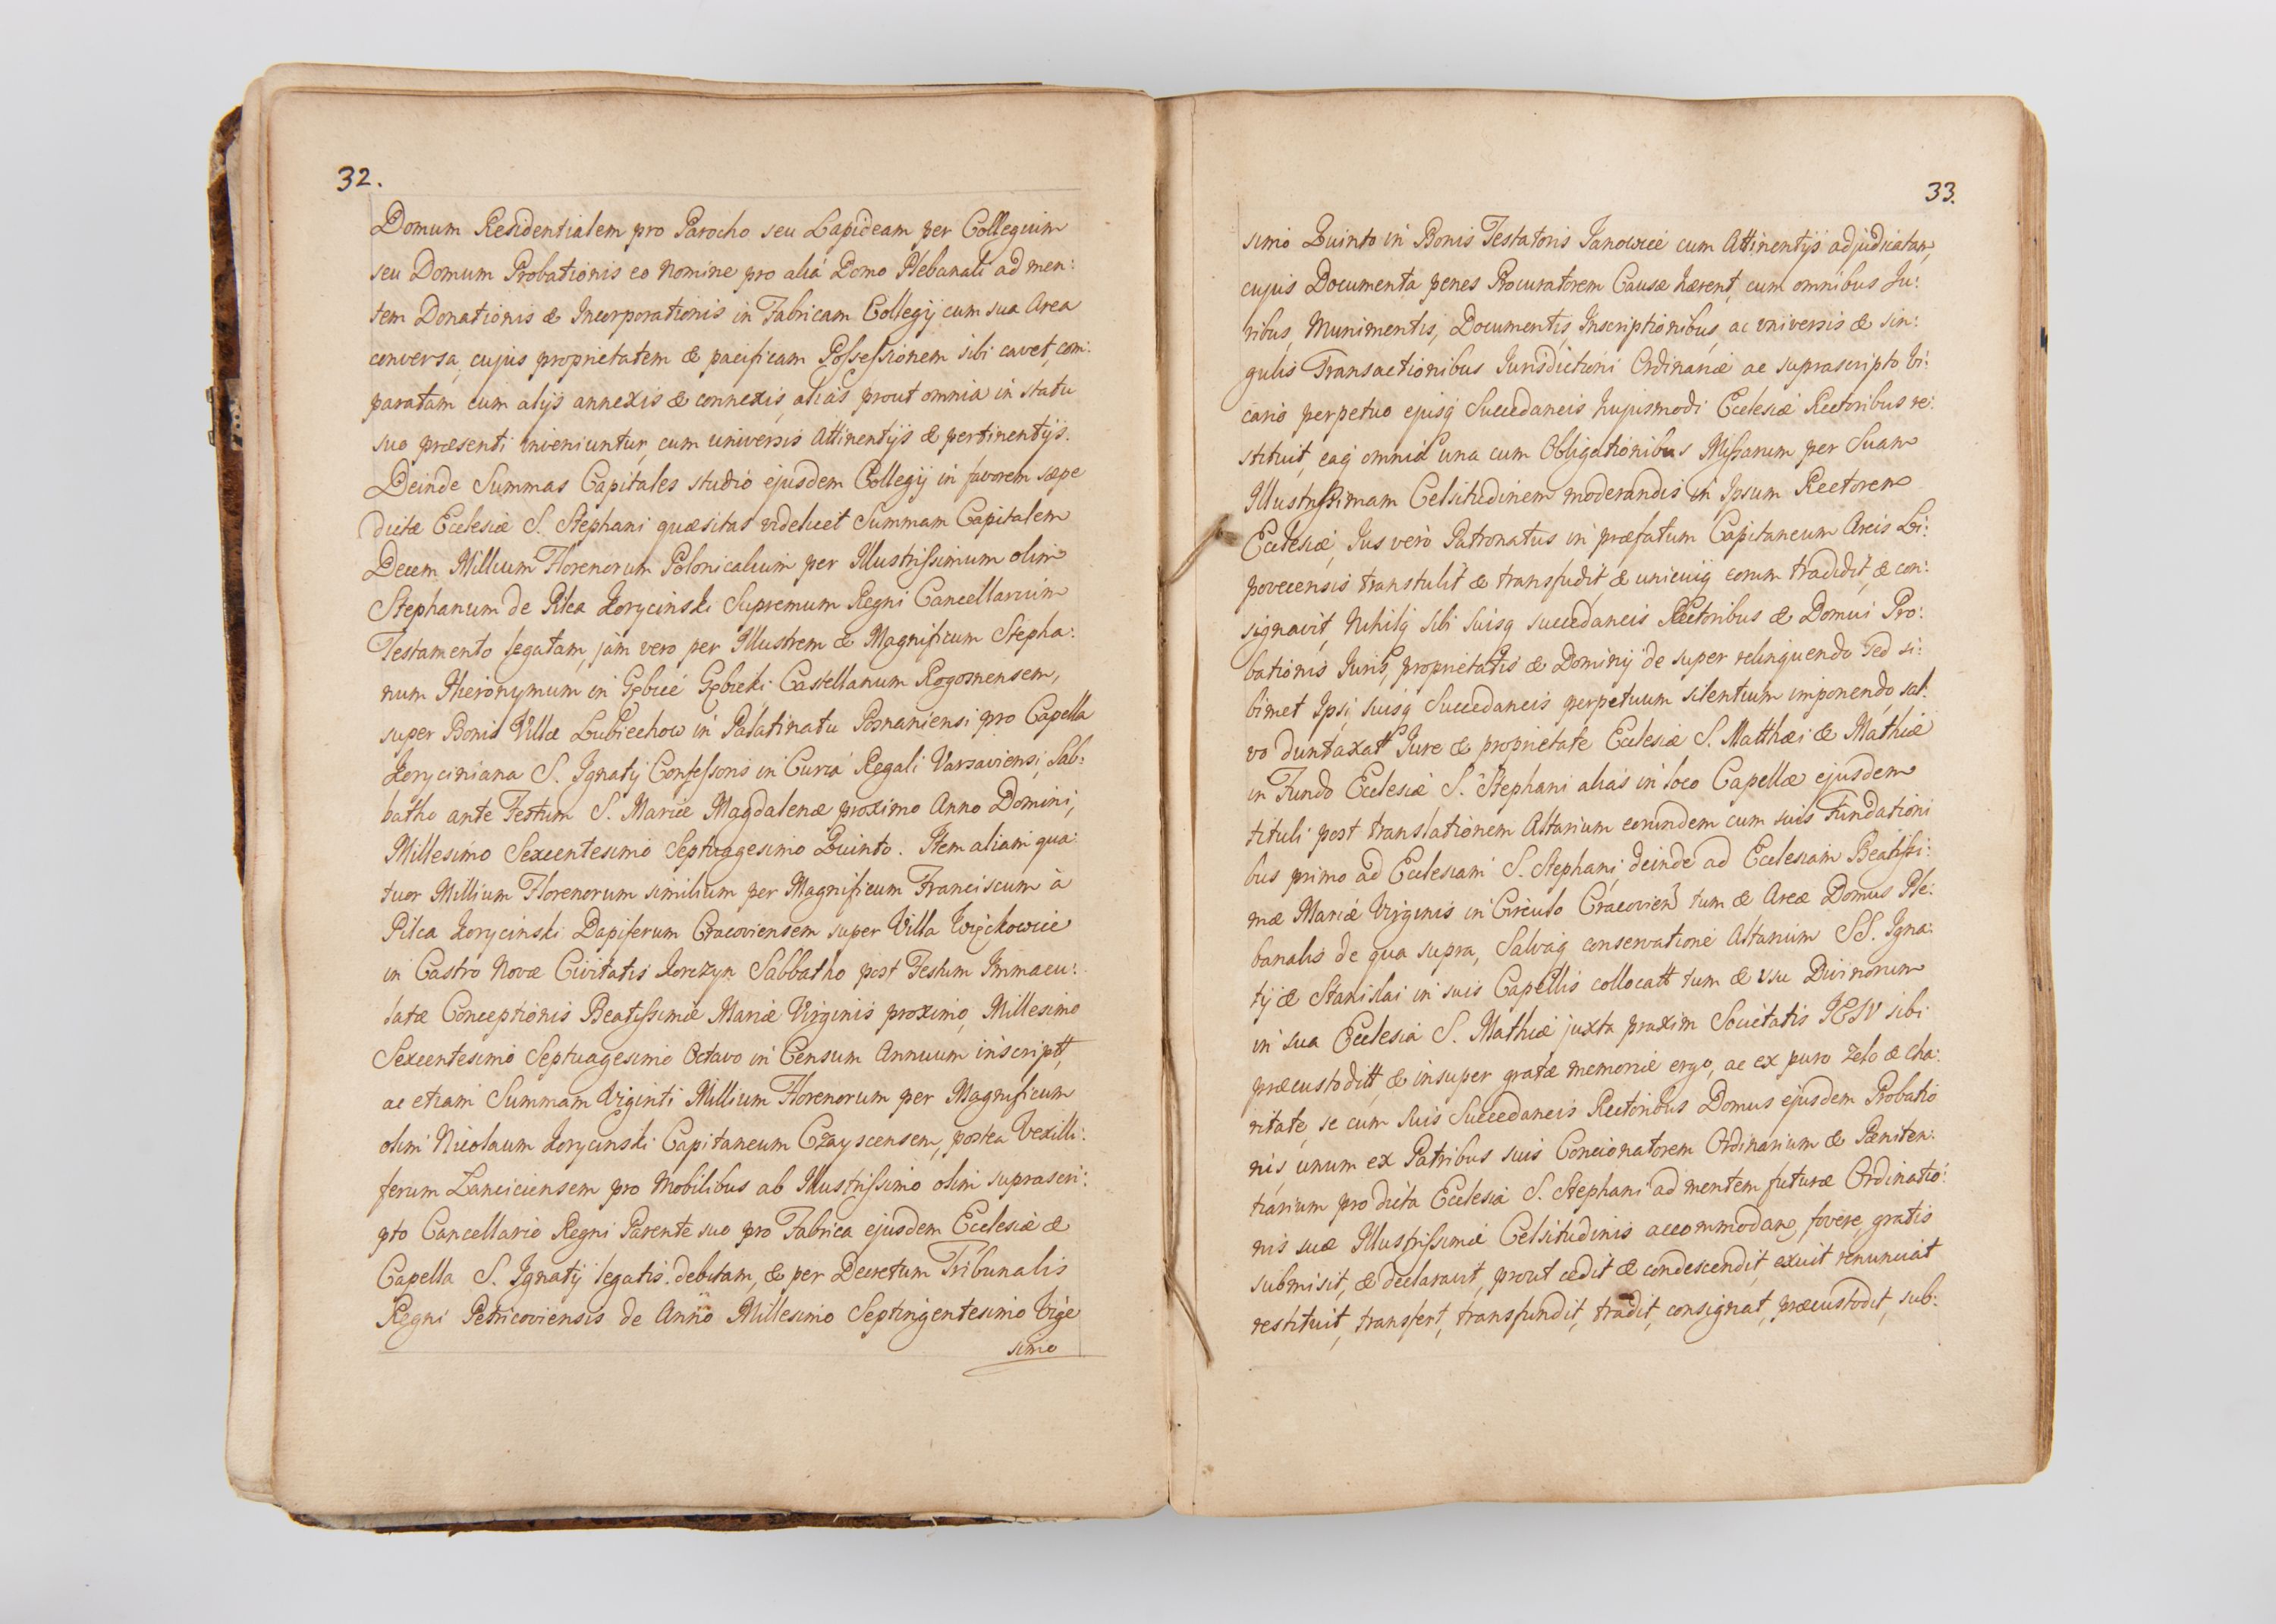 32.
Domum Residentialem pro Parocho seu Lapideam per Collegium
seu Domum Probationis eo Nomine pro aliâ Domo Plebanali ad men:
tem Donationis & Incorporationis in Fabricam Collegÿ cum sua Area
conversa, cujus proprietatem & pacificam Possessionem sibi cavet, com:
paratam cum alÿs annexis & connexis, alias prout omnia in statu
suo præsenti inveniuntur, cum universis Attinentÿs & pertinentÿs.
Deinde Summas Capitales studio ejusdem Collegÿ in favorem sæpe
dictæ Ecclesiæ S. Stephani quæsitas videlicet Summam Capitalem
Decem Millium Florenorum Polonicalium per Illustrissimum olim
Stephanum de Pilca Korycinski Supremum Regni Cancellarium
Testamento legatam, jam vero per Illustrem & Magnificum Stepha:
num Hieronymum in Gębice Gębicki Castellanum Rogosnensem,
super Bonis Villæ Lubiechow in Palatinatu Posnaniensi pro Capella
Koryciniana S. Ignatÿ Confessoris in Curia Regali Varsaviensi, Sab:
batho ante Festum S. Mariæ Magdalenæ proximo Anno Domini,
Millesimo Sexcentesimo Septuagesimo Quinto. Item aliam qua:
tuor Millium Florenorum similium per Magnificum Franciscum à
Pilca Korycinski Dapiferum Cracoviensem super Villa Więckowice
in Castro Novæ Civitatis Korczyn Sabbatho post Festum Immacu:
latæ Conceptionis Beatissimæ Mariæ Virginis proximo, Millesimo
Sexcentesimo Septuagesimo Octavo in Censum Annuum inscriptt,
ac etiam Summam Viginti Millium Florenorum per Magnificum
olim Nicolaum Korycinski Capitaneum Czayscensem, postea Vexilli:
ferum Lanciciensem pro Mobilibus ab Illustrissimo olim suprascri:
pto Cancellario Regni Parente suo pro Fabrica ejusdem Ecclesiæ &
Capella S. Ignatÿ legatis debitam, & per Decretum Tribunalis
Regni Petricoviensis de Anno Millesimo Septingentesimo Vige
simo
33.
simo Quinto in Bonis Testatoris Janowice cum Attinentÿs adjudicatam,
cujus Documenta penes Procuratorem Causæ hærent, cum omnibus Ju:
ribus, Munimentis, Documentis, Inscriptionibus, ac universis & sin:
gulis Transactionibus Jurisdictioni Ordinariæ ac suprascripto Vi:
cario perpetuo ejusq Succedaneis hujusmodi Ecclesiæ Rectoribus re:
stituit, eaq omnia una cum Obligationibus Missarum per Suam
Illustrissimam Celsitudinem moderandis in Ipsum Rectorem
Ecclesiæ, Jus verò Patronatus in præfatum Capitaneum Arcis Li:
povecensis transtulit & transfudit, & unicuiq eorum tradidit, & con:
signavit, Nihilq sibi suisq succedaneis Rectoribus & Domui Pro:
bationis Juris, proprietatis & Dominÿ de super relinquendo sed si:
bimet Ipsi, suisq Succedaneis perpetuum silentium imponendo, sal:
vo duntaxatt Jure & proprietate Ecclesiæ S. Matthæi & Mathiæ
in Fundo Ecclesiæ S. Stephani alias in loco Capellæ ejusdem
tituli post translationem Altarium eorundem cum suis Fundationi
bus primo ad Ecclesiam S. Stephani, deinde ad Ecclesiam Beatissi:
mæ Mariæ Virginis in Circulo Cracovien tum & Areæ Domus Ple:
banalis de qua supra, Salvaq conservatione Altarium SS. Igna:
tÿ & Stanislai in suis Capellis collocatt tum & usu Divinorum
in sua Ecclesia S. Mathiæ juxta praxim Societatis JESV sibi
præcustoditt, & insuper gratæ memoriæ ergo, ac ex puro zelo & cha:
ritate, se cum suis Succedaneis Rectoribus Domus ejusdem Probatio
nis, unum ex Patribus suis Concionatorem Ordinarium & Pæniten:
tiarium pro dicta Ecclesia S. Stephani ad mentem futuræ Ordinatio:
nis suæ Illustrissimæ Celsitudinis accommodare, fovere, gratis
submisit, & declaravit, prout cedit & condescendit, exuit renunciat
restituit, transfert, transfundit, tradit, consignat, præcustodit, sub: